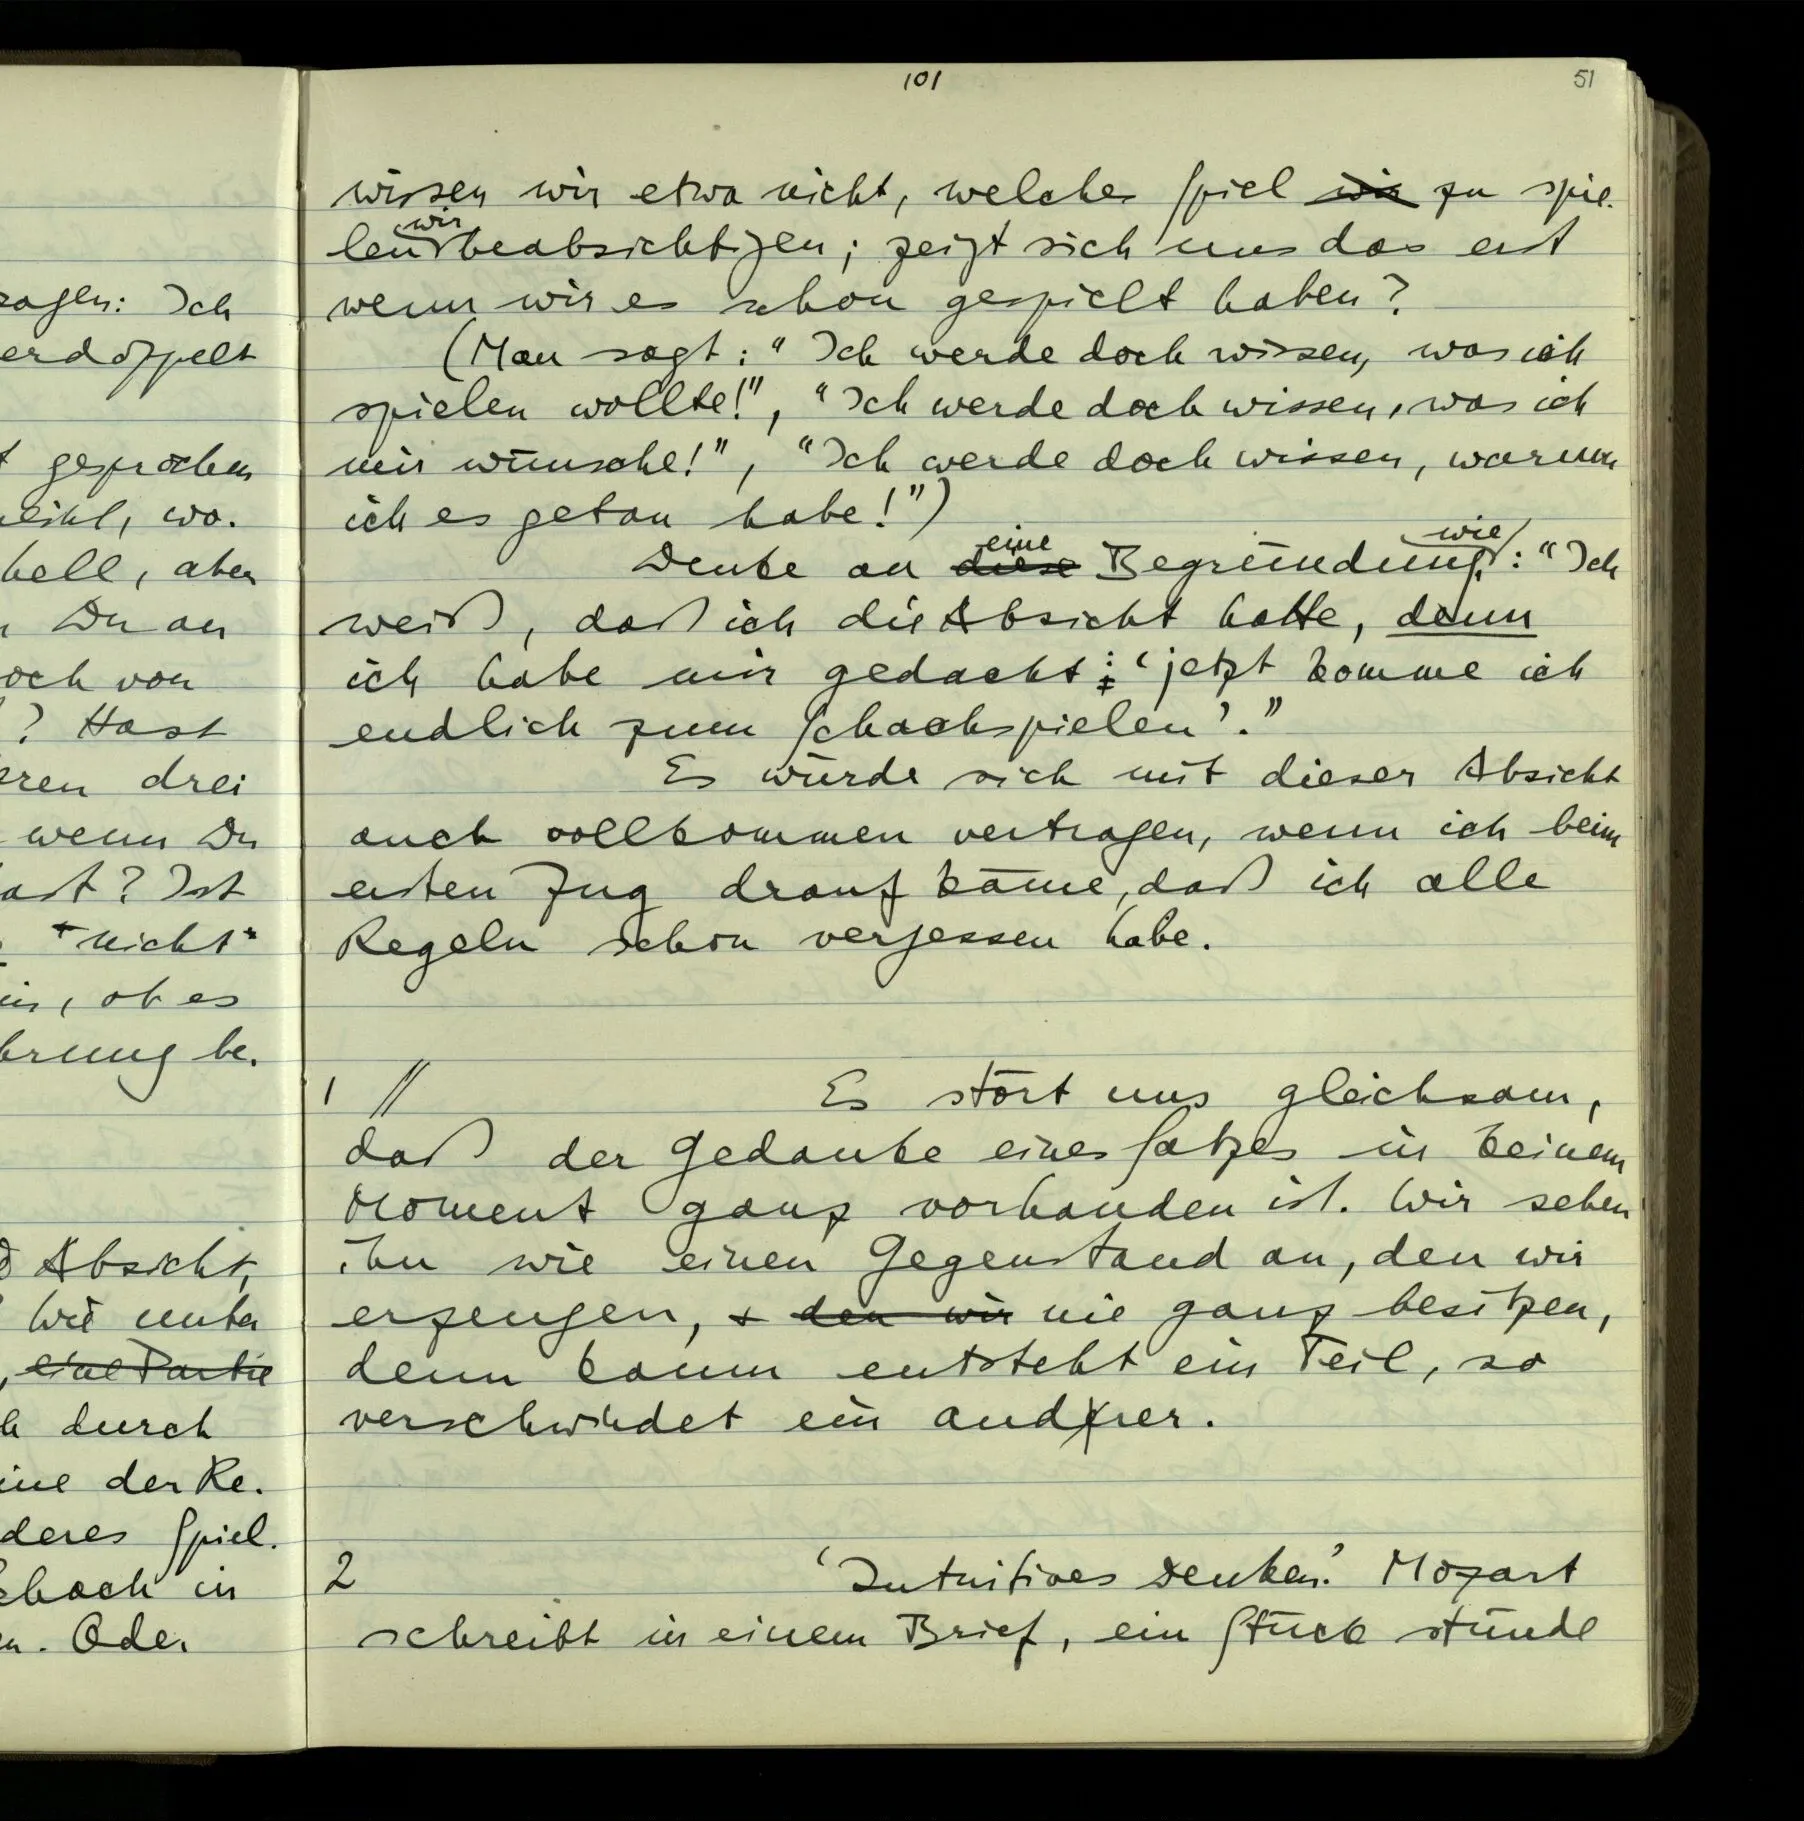 101
51
wissen wir etwa nicht, welches Spiel wir zu spie-
len wir beabsichtigen; zeigt sich uns das erst
wenn wir es schon gespielt haben?
(Man sagt: "Ich werde doch wissen, was ich
spielen wollte!", "Ich werde doch wissen, was ich
mir wünsche!", "Ich werde doch wissen, warum
ich es getan habe!")
eine wie
Denke an diese Begründung: "Ich
weiß, daß ich die Absicht hatte, denn
ich habe mir gedacht: 'jetzt komme ich
endlich zum Schachspielen'."
Es würde sich mit dieser Absicht
auch vollkommen vertragen, wenn ich beim
ersten Zug drauf käme, daß ich alle
Regeln schon vergessen habe.
1 // Es stört uns gleichsam,
daß der Gedanke eines Satzes in keinem
Moment ganz vorhanden ist. Wir sehen
ihn wie einen Gegenstand an, den wir
erzeugen, & den wir nie ganz besitzen,
denn kaum entsteht ein Teil, so
verschwindet ein andrer.
2 'Intuitives Denken.' Mozart
schreibt in einem Brief, ein Stück stünde
sagen: Ich
erdoppelt
gesprochen
wo-
hell, aber
Du an
och von
? Hast
eren drei
wenn Du
ast? Ist
"nicht"
, ob es
hrung be-
Absicht,
Wie unter
, eine Partie
h durch
ine der Re-
deres Spiel.
Schach in
en. Oder